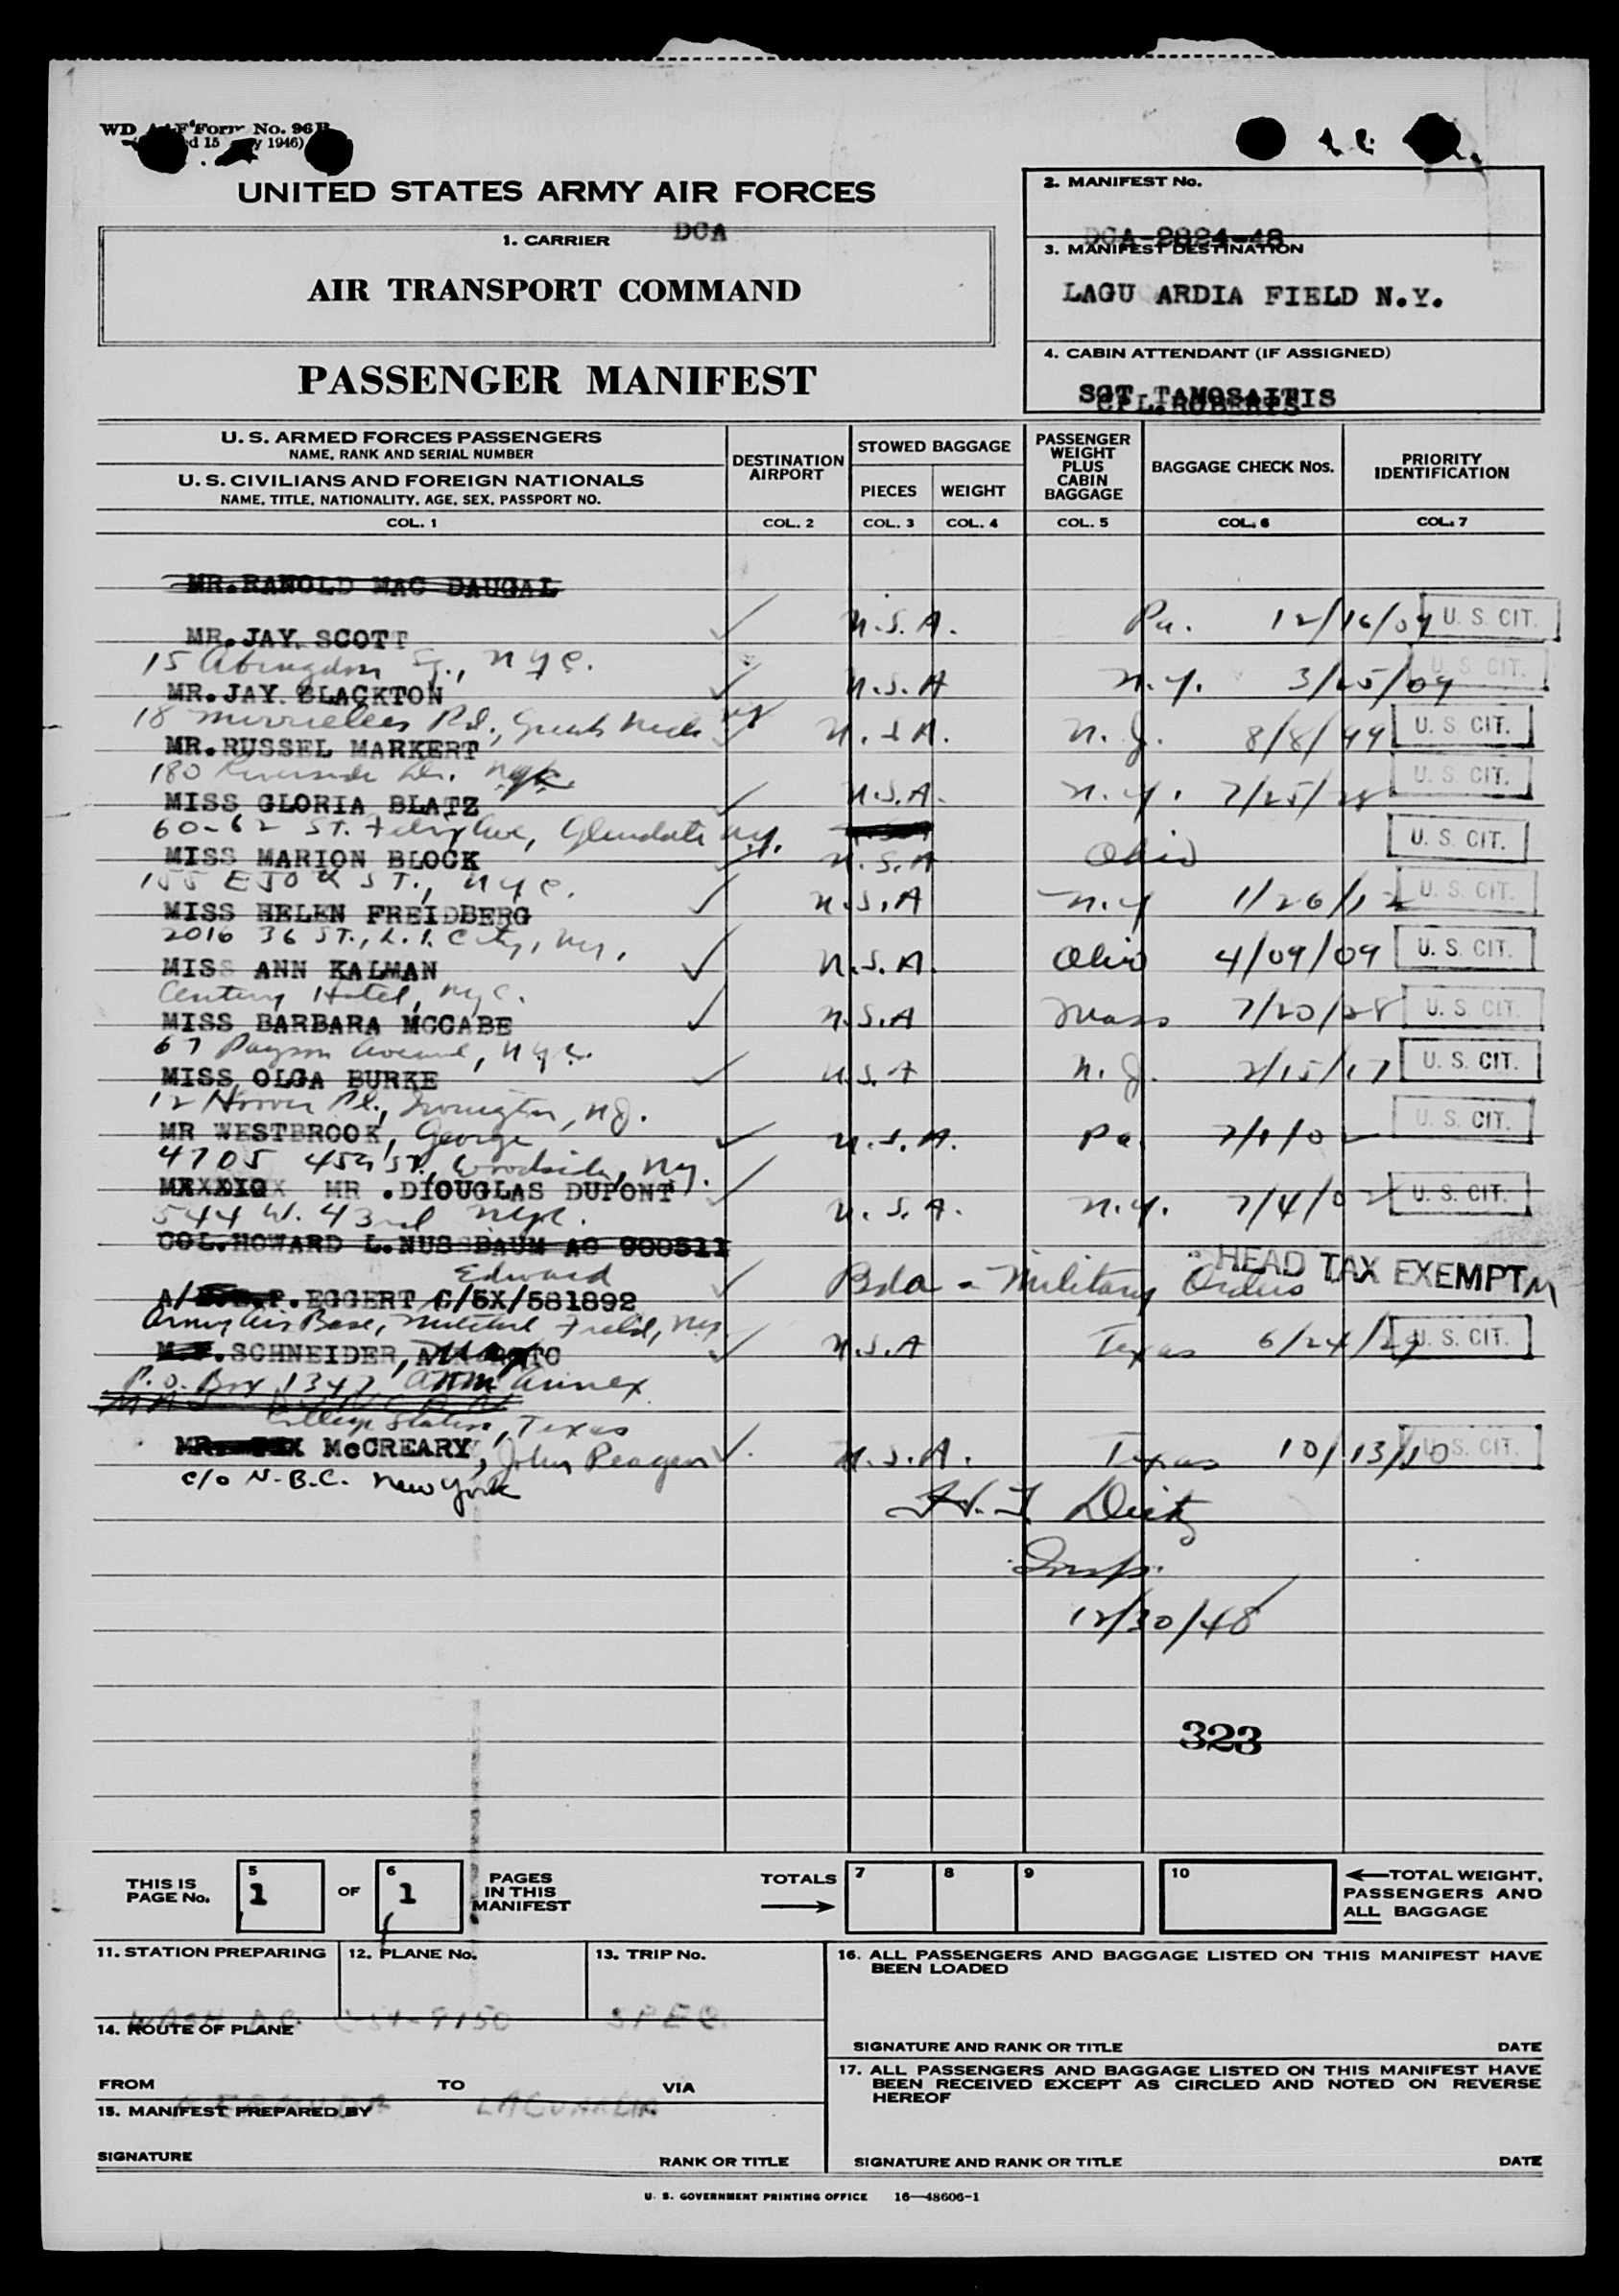 WD AAF Form No. 96B
15 1946)
UNITED STATES ARMY AIR FORCES
1. CARRIER DCA
AIR TRANSPORT COMMAND
PASSENGER MANIFEST
2. MANIFEST No.
DCA-2824-48
3. MANIFEST DESTINATION
LAGU ARDIA FIELD N.Y.
4. CABIN ATTENDANT (IF ASSIGNED)
SGT TAMOSAITIS
CPL.ROBERTS
U. S. ARMED FORCES PASSENGERS
NAME, RANK AND SERIAL NUMBER
U. S. CIVILIANS AND FOREIGN NATIONALS
NAME, TITLE, NATIONALITY, AGE, SEX, PASSPORT NO.
COL. 1
DESTINATION AIRPORT
COL. 2
STOWED BAGGAGE
PIECES WEIGHT
COL. 3 COL. 4
PASSENGER WEIGHT PLUS CABIN BAGGAGE
COL. 5
BAGGAGE CHECK Nos.
COL. 6
PRIORITY IDENTIFICATION
COL. 7
MR.RANOLD MAC DAUGAL
MR.JAY SCOTT U.S.A. Pa. 12/16/04 U. S. CIT.
15 Abingdon Sq., NYC.
MR.JAY BLACKTON U.S.A N.Y. 3/25/09 U. S. CIT.
18 Merrielees Rd., Great Neck NY
MR.RUSSEL MARKERT U.S.A. N.J. 8/8/99 U. S. CIT.
180 Riverside Dr. NYC
MISS GLORIA BLATZ U.S.A. N.Y. 7/25/28 U. S. CIT.
60-62 St. Felix Ave, Glendale NY.
MISS MARION BLOCK U.S.A Ohio U. S. CIT.
155 E ST., NYC.
MISS HELEN FREIDBERG U.S.A N.Y 1/26/12 U. S. CIT.
2016 36 ST., L.I. City, NY.
MISS ANN KALMAN U.S.A. Ohio 4/09/09 U. S. CIT.
Century Hotel, NYC.
MISS BARBARA MCCABE U.S.A Mass 7/20/28 U. S. CIT.
67 Payson Avenue, NYC.
MISS OLGA BURKE U.S.A N.J. 2/15/17 U. S. CIT.
12 Hoover Pl., Irvington, NJ.
MR WESTBROOK, George U.S.A. Pa 7/1/02 U. S. CIT.
4705 45th ST., Woodside, NY.
MR .DIOUGLAS DUPONT U.S.A. N.Y. 7/4/02 U. S. CIT.
544 W. 43rd NYC.
COL.HOWARD L.NUSSBAUM AO 900511
HEAD TAX EXEMPT
Edward
A/ .EGGERT /5X/581892 Bda - Military Orders
Army Air Base, Mitchel Field, NY
.SCHNEIDER, U.S.A Texas 6/24/29 U. S. CIT.
P.O. Box 1347 A&M Annex
College Station, Texas
MR. McCREARY, John Reagan U.S.A. Texas 10/13/10 U. S. CIT.
c/o N.B.C. New York
Insp.
12/30/48
323
THIS IS PAGE No. 5 1 OF 6 1 PAGES IN THIS MANIFEST
TOTALS 7 8 9 10
TOTAL WEIGHT, PASSENGERS AND ALL BAGGAGE
11. STATION PREPARING 12. PLANE No. 13. TRIP No.
WASH DC C-54-9150 SPEC.
14. ROUTE OF PLANE
FROM BERMUDA TO LAGUARDIA VIA
15. MANIFEST PREPARED BY
SIGNATURE RANK OR TITLE
16. ALL PASSENGERS AND BAGGAGE LISTED ON THIS MANIFEST HAVE
BEEN LOADED
SIGNATURE AND RANK OR TITLE DATE
17. ALL PASSENGERS AND BAGGAGE LISTED ON THIS MANIFEST HAVE
BEEN RECEIVED EXCEPT AS CIRCLED AND NOTED ON REVERSE
HEREOF
SIGNATURE AND RANK OR TITLE DATE
U. S. GOVERNMENT PRINTING OFFICE 16—48606-1